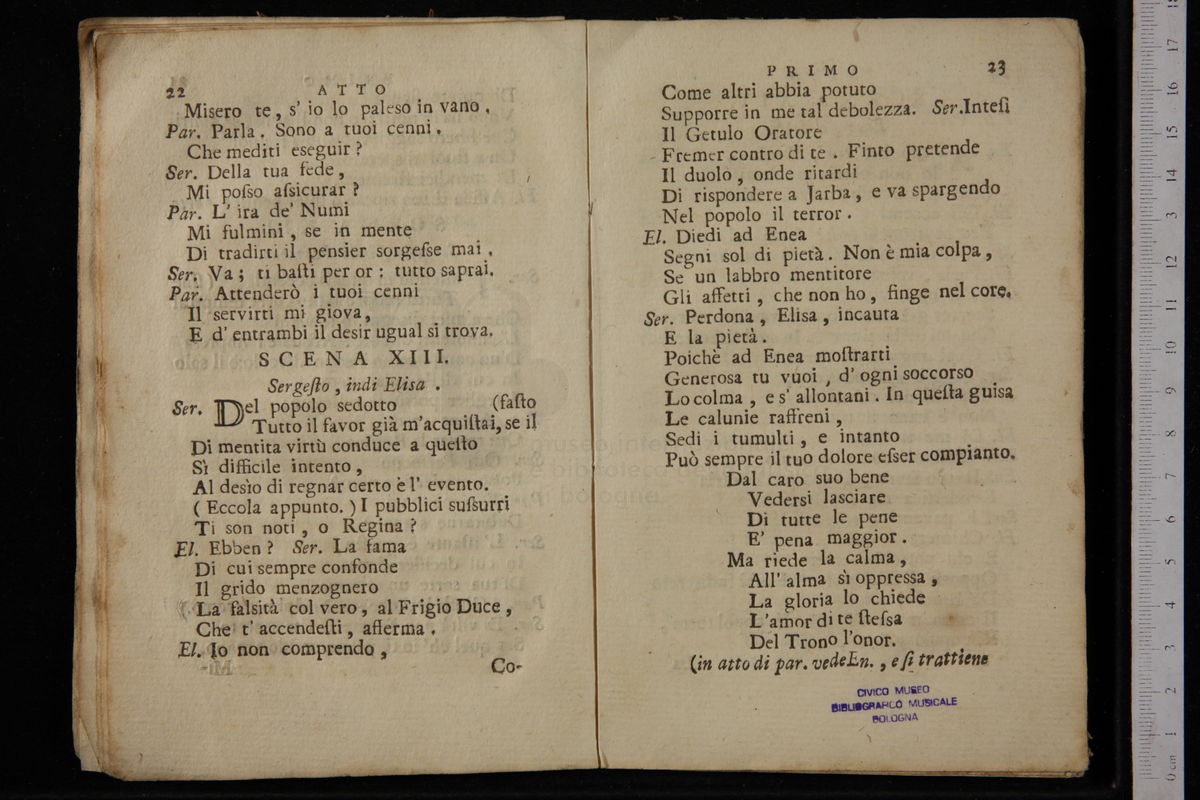 22 ATTO
Misero te, s' io lo paleso in vano.
Par. Parla. Sono a tuoi cenni.
Che mediti eseguir?
Ser. Della tua fede,
Mi poſso aſsicurar?
Par. L' ira de' Numi
Mi fulmini, se in mente
Di tradirti il pensier sorgeſse mai.
Ser. Va; ti baſti per or: tutto saprai.
Par. Attenderò i tuoi cenni
Il servirti mi giova,
E d' entrambi il desir ugual si trova.
SCENA XIII.
Sergeſto, indi Elisa.
Ser. Del popolo sedotto (faſto
Tutto il favor già m'acquiſtai, se il
Di mentita virtù conduce a queſto
Sì difficile intento,
Al desìo di regnar certo è l' evento.
(Eccola appunto.) I pubblici suſsurri
Ti son noti, o Regina?
El. Ebben? Ser. La fama
Di cui sempre confonde
Il grido menzognero
La falsità col vero, al Frigio Duce,
Che t' accendeſti, afferma.
El. Io non comprendo,
Co-
PRIMO 23
Come altri abbia potuto
Supporre in me tal debolezza. Ser. Inteſi
Il Getulo Oratore
Fremer contro di te. Finto pretende
Il duolo, onde ritardi
Di rispondere a Jarba, e va spargendo
Nel popolo il terror.
El. Diedi ad Enea
Segni sol di pietà. Non è mia colpa,
Se un labbro mentitore
Gli affetti, che non ho, finge nel core.
Ser. Perdona, Elisa, incauta
E la pietà.
Poichè ad Enea moſtrarti
Generosa tu vuoi, d' ogni soccorso
Lo colma, e s' allontani. In queſta guisa
Le calunie raffreni,
Sedi i tumulti, e intanto
Può sempre il tuo dolore eſser compianto.
Dal caro suo bene
Vedersi lasciare
Di tutte le pene
E' pena maggior.
Ma riede la calma,
All' alma sì oppressa,
La gloria lo chiede
L'amor di te ſteſsa
Del Trono l'onor.
(in atto di par. vede En., e ſi trattiene
CIVICO MUSEO
BIBLIOGRAFICO MUSICALE
BOLOGNA